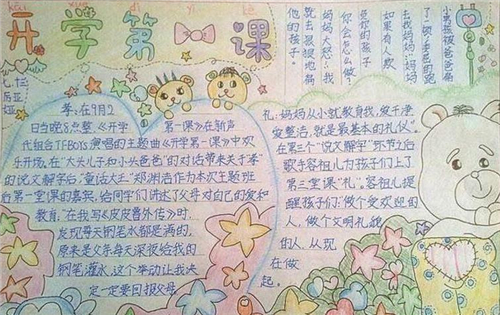 kāi xué dì yí kè
开学第一课
七十三
孝:在9月2
日当晚8点整,《开学
第一课》在新声
代组合TFBoys演唱的主题曲《开学第一课》中欢
乐开场。在“大头儿子和小头爸爸”的对话带来关于孝
的说文解字后,“童话大王”郑渊洁作为本次主题班
后第一堂课的嘉宾,给同学们讲述了父母对自己的爱和
教育,“在我写《皮皮鲁外传》时,
发现每天钢笔水都是满的,
原来是父亲每天深夜给我的
钢笔灌水,这个举动让我决
定一定要回报父母
小男孩被爸爸痛
了一顿,手色的跑
去找妈妈,妈妈:
如果有人欺
负你的孩子,
你会怎么做
妈妈:大怒,我
就去狠狠地痛
他的孩子!
礼:妈妈从小就教育我,爱干净
爱整洁,就是最基本的礼仪”。
在第三个“说文解字”环节之后
歌手容祖儿为孩子们上了
第三堂课“礼”。容祖儿提
醒孩子们,做个受欢迎的
人,做个文明礼貌
的人,从现
在做
起。